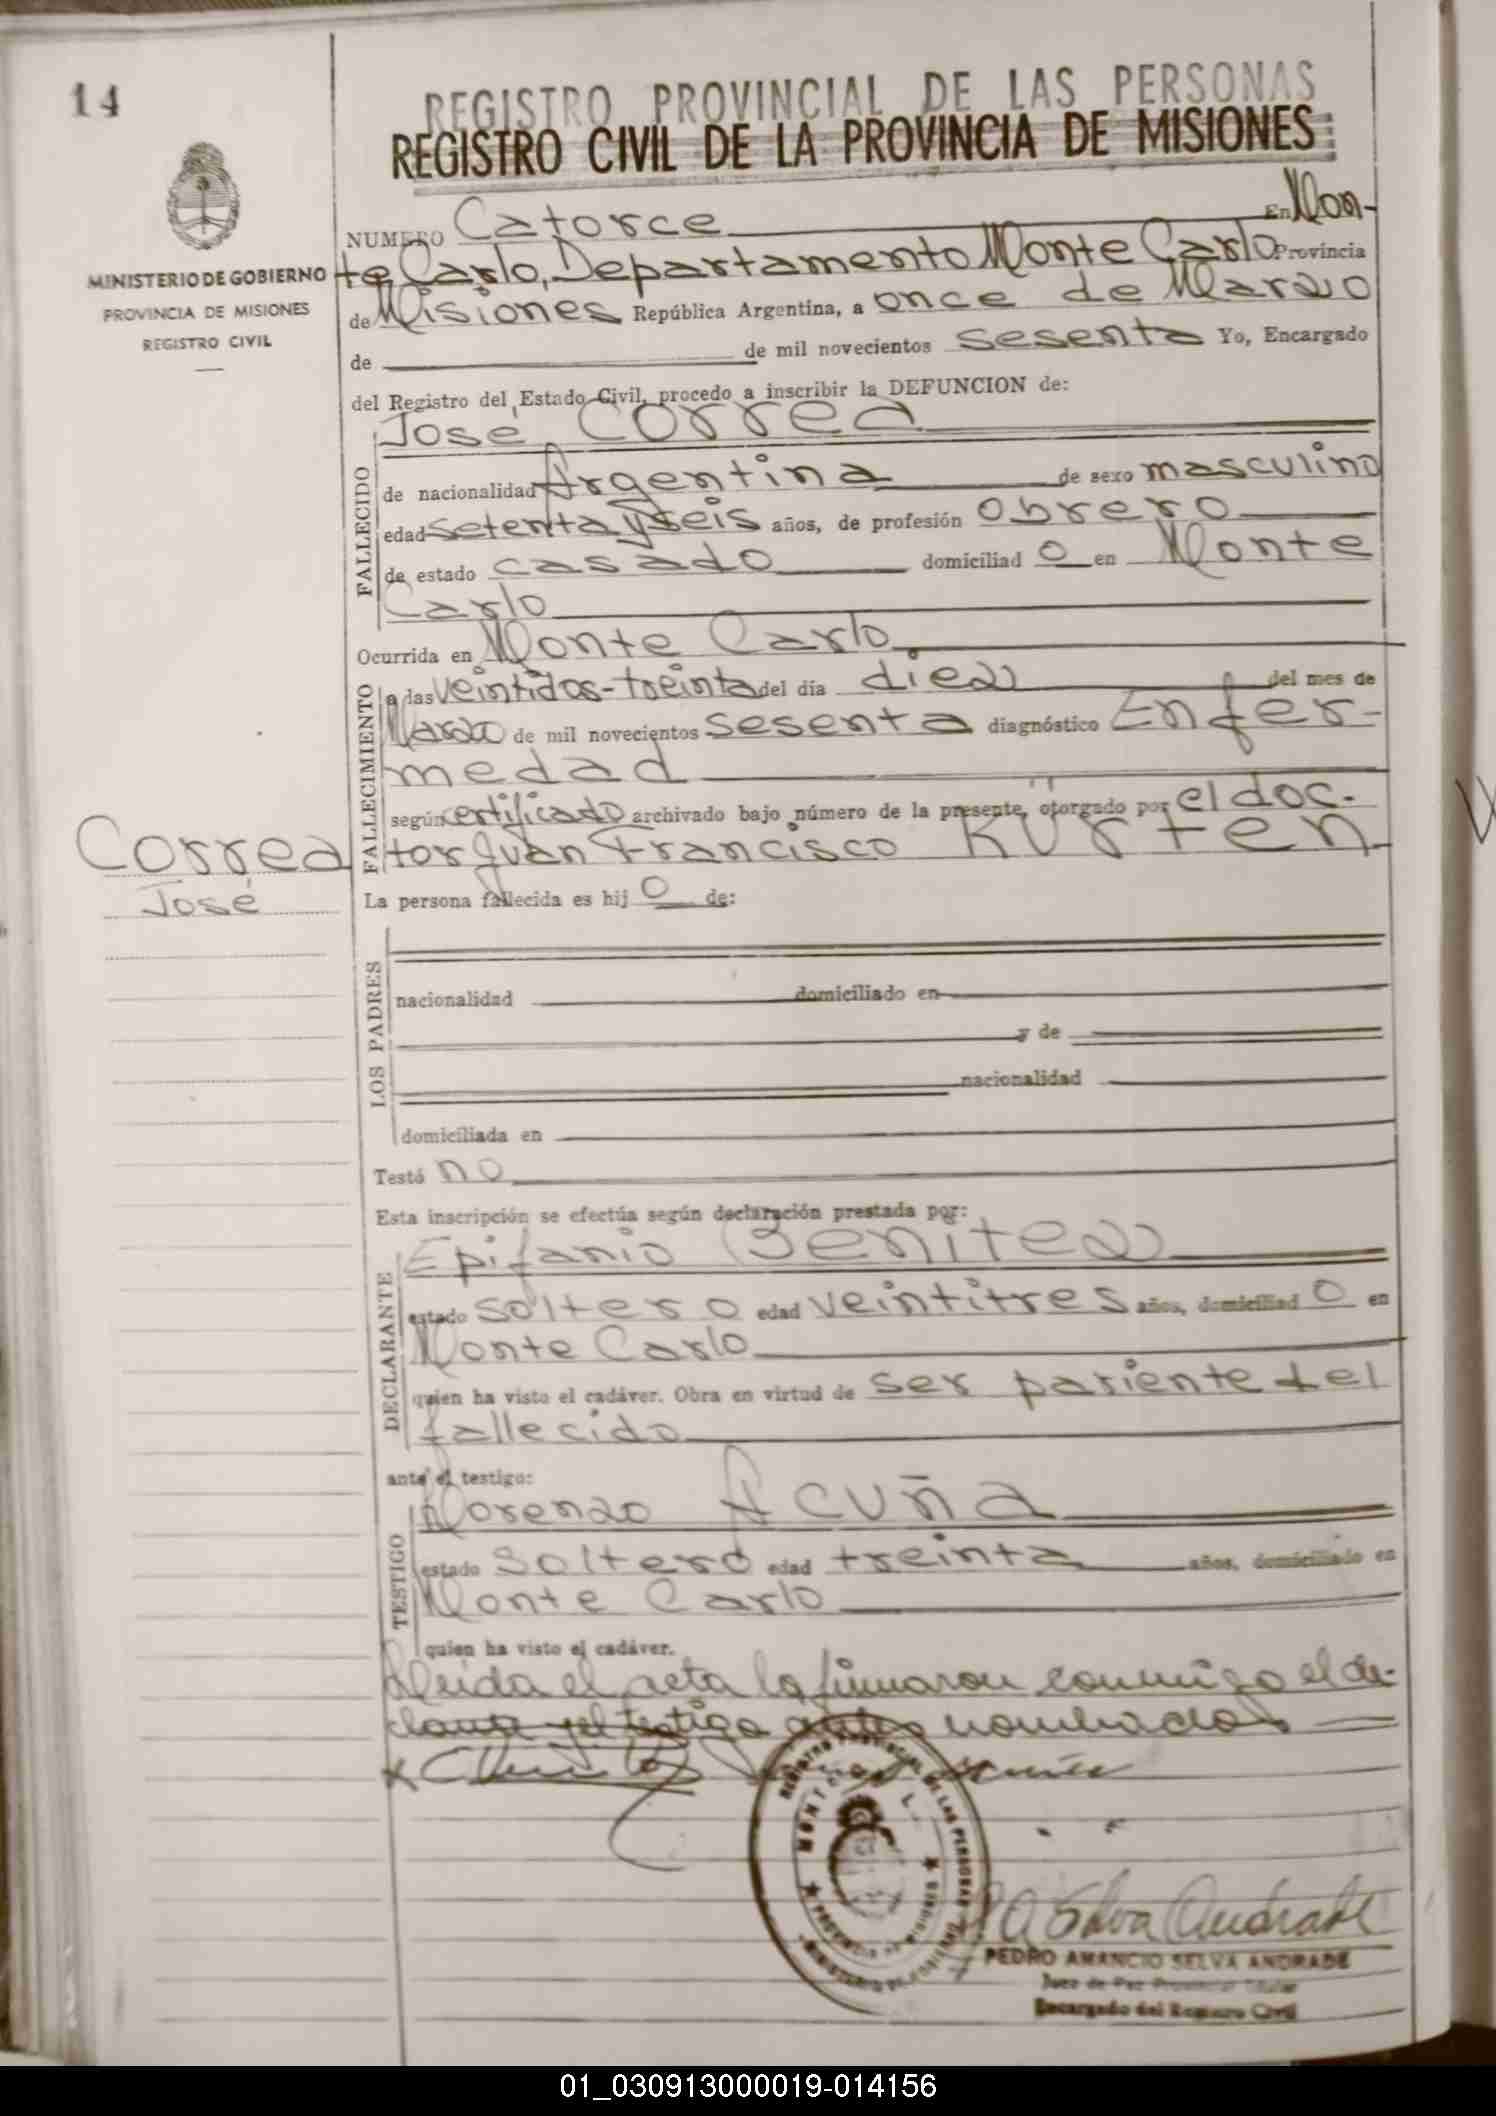 14
REGISTRO PROVINCIAL DE LAS PERSONAS
REGISTRO CIVIL DE LA PROVINCIA DE MISIONES
MINISTERIO DE GOBIERNO
PROVINCIA DE MISIONES
REGISTRO CIVIL
NUMERO Catorce En Mon-
te Carlo, Departamento Monte Carlo Provincia
de Misiones República Argentina, a once de Marzo
de de mil novecientos sesenta Yo, Encargado
del Registro del Estado Civil, procedo a inscribir la DEFUNCION de:
José Correa
FALLECIDO
de nacionalidad Argentina de sexo masculino
edad setenta y seis años, de profesión obrero
de estado casado domiciliad o en Monte
Carlo
Ocurrida en Monte Carlo
FALLECIMIENTO
a las veintidos-treinta del día diez del mes de
Marzo de mil novecientos sesenta diagnóstico Enfer-
medad
según certificado archivado bajo número de la presente, otorgado por el doc-
tor Juan Francisco Kürten
Correa
José
La persona fallecida es hij o de:
LOS PADRES
nacionalidad domiciliado en
y de
nacionalidad
domiciliada en
Testó no
Esta inscripción se efectúa según declaración prestada por:
Epifanio Benitez
DECLARANTE
estado soltero edad veintitres años, domiciliad o en
Monte Carlo
quien ha visto el cadáver. Obra en virtud de ser pariente del
fallecido
ante el testigo:
Lorenzo Acuña
TESTIGO
estado soltero edad treinta años, domiciliado en
Monte Carlo
quien ha visto el cadáver.
Leida el acta la firmaron conmigo el de-
clarante y el testigo antes nombrados
REGISTRO PROVINCIAL DE LAS PERSONAS
PROVINCIA DE MISIONES
MINISTERIO DE GOBIERNO
P A Selva Andrade
PEDRO AMANCIO SELVA ANDRADE
Juez de Paz Provincial Titular
Encargado del Registro Civil
01_030913000019-014156